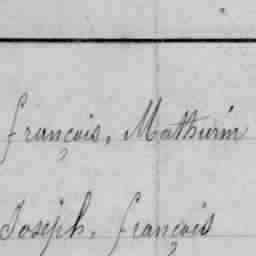 françois, Mathurin
Joseph, françois